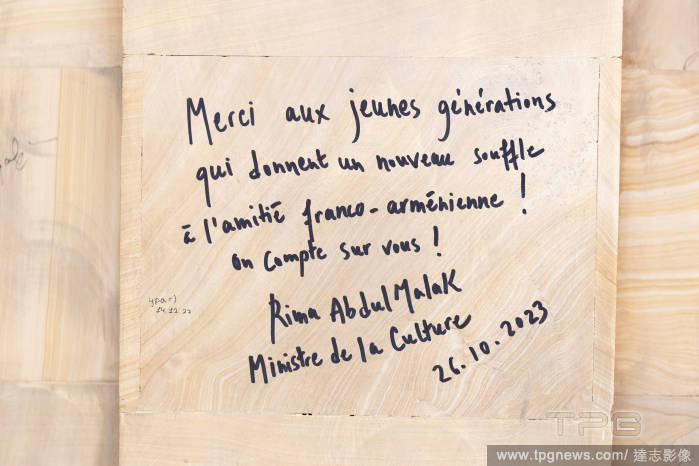 Merci aux jeunes générations
qui donnent un nouveau souffle
à l'amitié franco-arménienne !
on compte sur vous !
Rima AbdulMalak
Ministre de la Culture
26.10.2023
14.12.22
TPG
www.tpgnews.com/ 達志影像